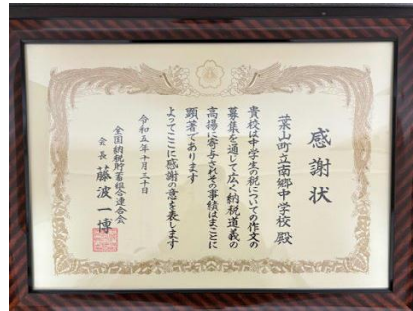 感謝状
葉山町立南郷中学校 殿
貴校は中学生の税についての作文の
募集を通じて広く納税道義の
高揚に寄与されその事績はまことに
顕著であります
よってここに感謝の意を表します
令和五年十月三十日
全国納税貯蓄組合連合会
会長 藤波一博